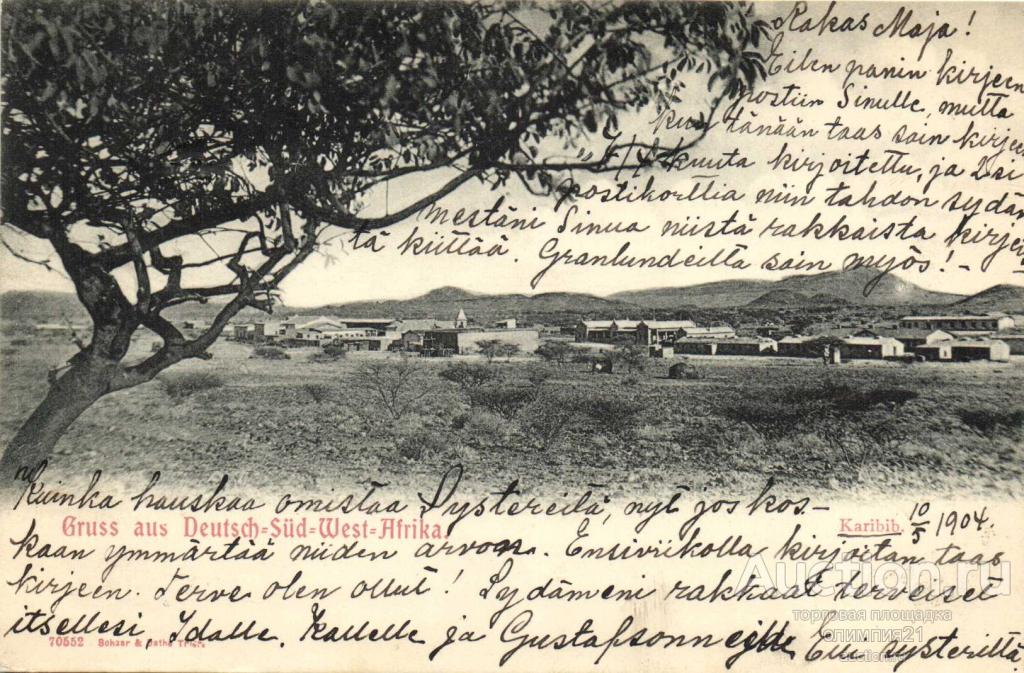 Rakas Maja!
Eilen panin kirjeen
postiin Sinulle, mutta
kun tänään taas sain kirjeen
7/4 kuuta kirjoitettu, ja 2si
postikorttia niin tahdon sydä-
mestäni Sinua niistä rakkaista kirjeis
tä kiittää. Granlundeilta sain myös! -
Kuinka hauskaa omistaa Systereitä, nyt jos kos-
Gruss aus Deutsch-Süd-West-Afrika.
Karibib. 10/5 1904.
kaan ymmärtää niiden arvon. Ensiviikolla kirjoitan taas
kirjeen. Terve olen ollut! Sydämeni rakkaat terveiset
itsellesi Idalle, Kallelle ja Gustafsonneille Eui systeriltä
70552
Auction.ru
торговая площадка
олимпия21
auction.ru